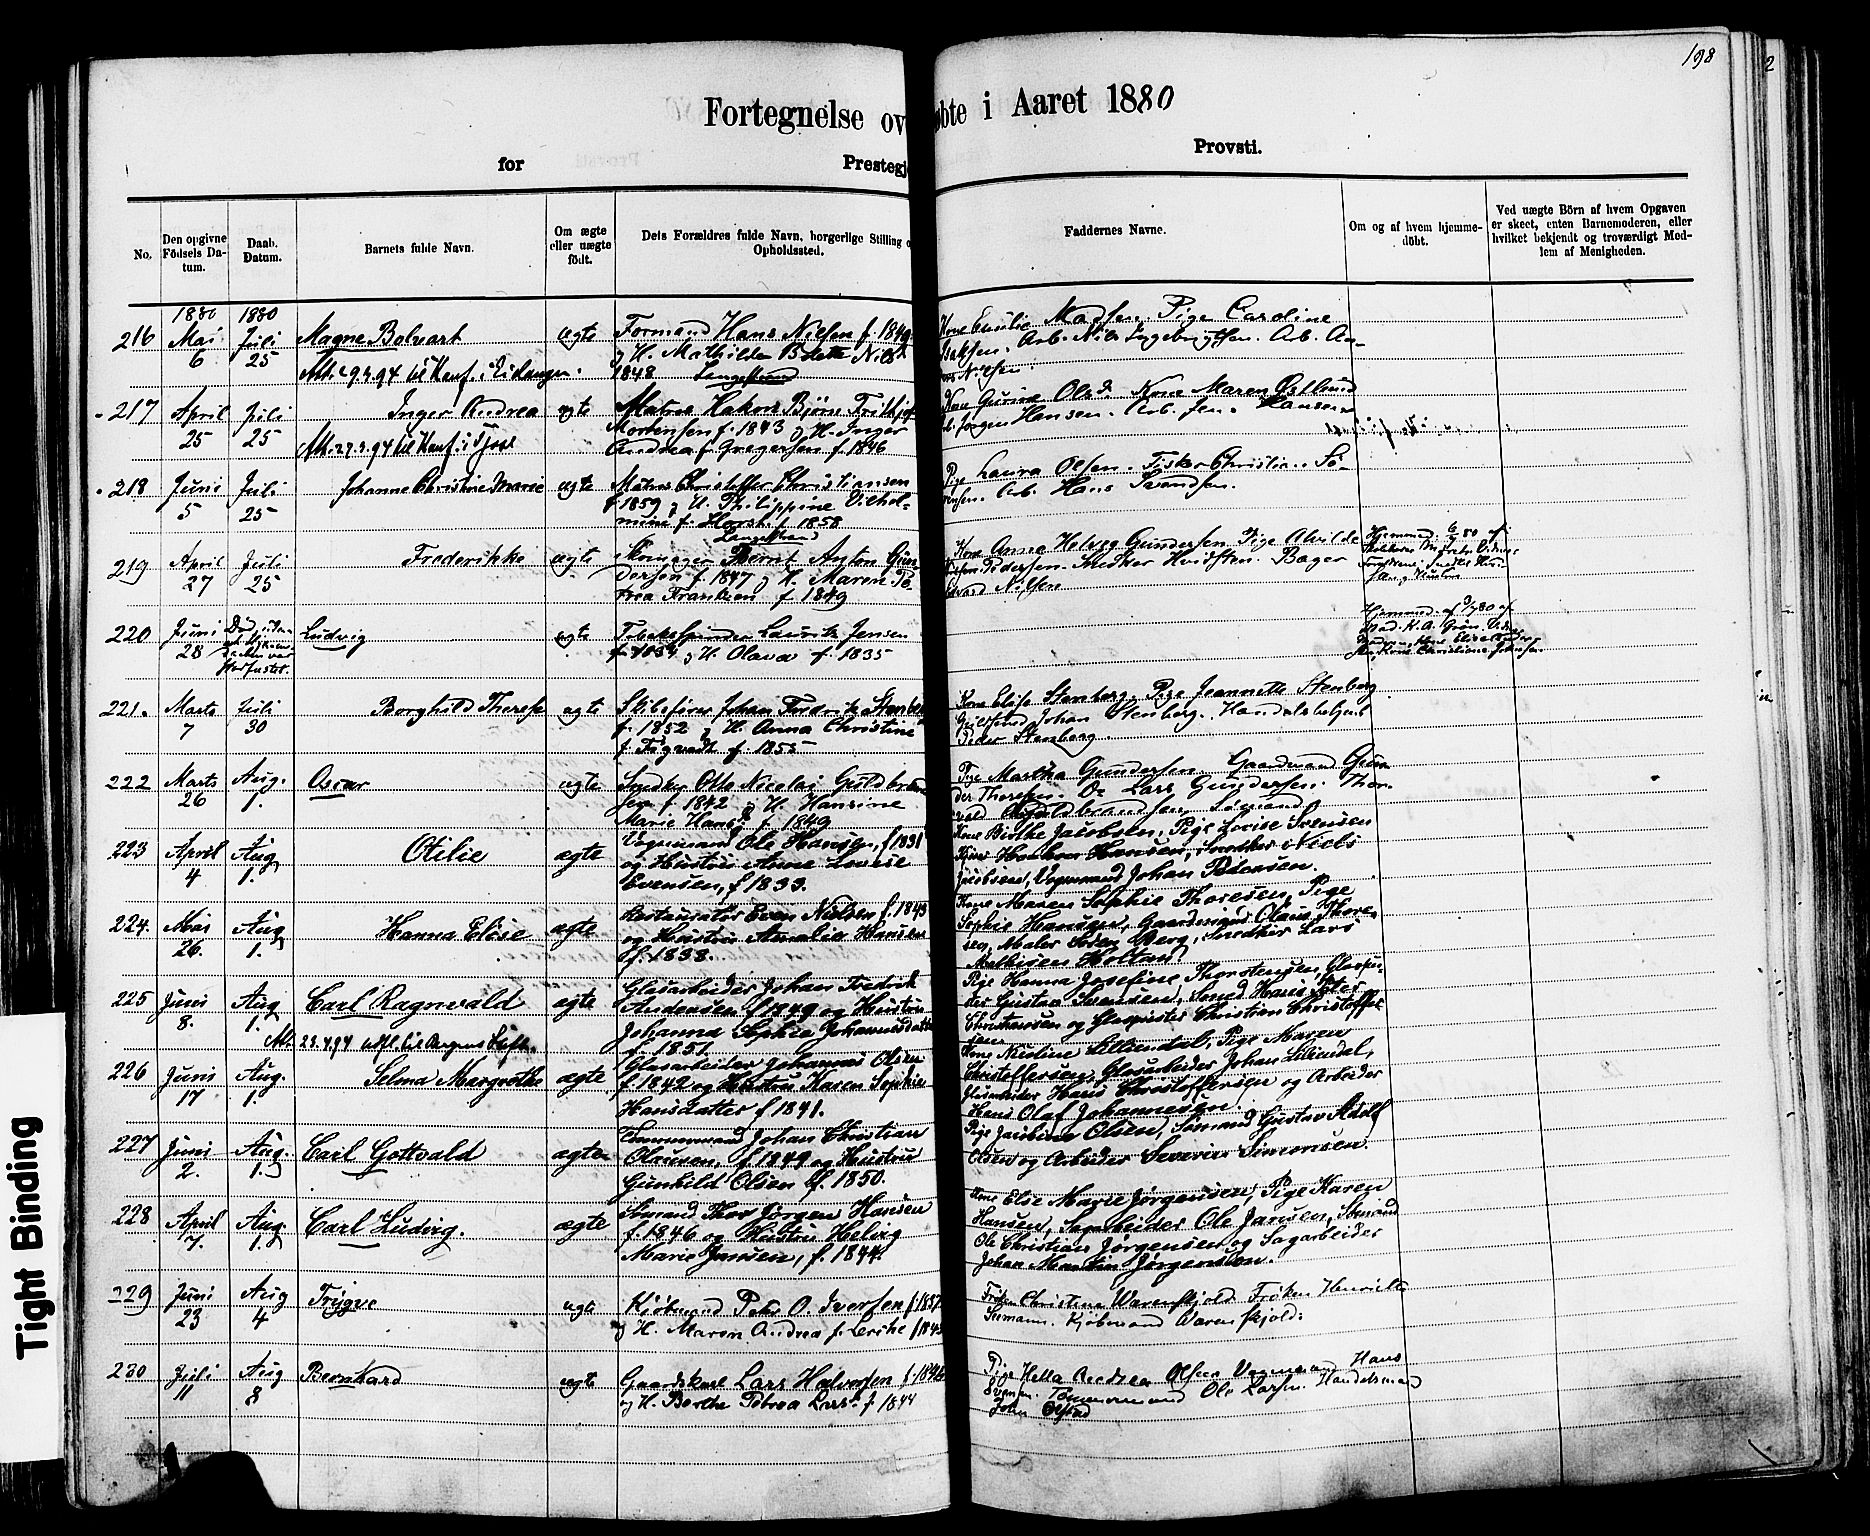 198
2
Fortegnelse ov
øbte i Aaret 1880
for
Prestegj
Provsti.
No.
Den opgivne Födsels Datum.
Daab. Datum.
Barnets fulde Navn.
Om ægte eller uægte födt.
Dets Forældres fulde Navn, borgerlige Stilling o
Opholdssted.
Faddernes Navne.
Om og af hvem hjemmedöbt.
Ved uægte Börn af hvem Opgaven er skeet, enten Barnemoderen, eller hvilket bekjendt og troværdigt Medlem af Menigheden.
1880 1880
216 Mai 6 Juli 25 Magne Bolvart ægte Formand Hans Nielsen f. 1849
& H. Mathilde
1848 Langestrand
Kone Emilie Madsen. Pige Caroline
Isaksen. Arb. Nils Ingebrigtsen. Arb. An-
Nilsen
Att. 29.3.94 til Konf. i Eidanger.
217 April 25 Juli 25 Inger Andrea ægte Matros Hakon Bjørn Frithjof
Mortensen f. 1843 & H. Inger
Andrea f. Gregersen f. 1846
Kone Gurine Olsd. Kone Maren Østlund
Jørgen Hansen. Arb. Jen. Hansen
Att. 27.3.94 til Konf. i
218 Juni 5 Juli 25 Johanne Christine Marie ægte Matros Christoffer Christiansen
f. 1859 & H. Philippine Vilhel-
mine f. Horst f. 1858
Langestrand
Pige Laura Olsen. Fisker Christian Sö-
rensen. Arb. Hans Svendsen.
219 April 27 Juli 25 Frederikke ægte Skomager Bernt Anton Gun
dersen f. 1847 & H. Maren Pe-
trea Frantzen f. 1849
Kone Anne Helvig Gundersen. Pige Alvilde
Pedersen. Snedker Knudsen. Bager
Edvard Nilsen
220 Juni 28 Ludvig ægte Tobakspinder Lauritz Jensen
f. 1834 & H. Olava f. 1835
221. Marts 7 Juli 30 Borghild Therese ægte Skibsfører Johan Fredrik Stenberg
f. 1852 & H. Anna Christine
f. 1855
Kone Elise Stenberg. Pige Jeannette Stenberg
Johan Stenberg. Handelsbetjent
Peder Stenberg.
222 Marts 26 Aug. 1. Oscar ægte Snedker Otto Nicolai Guldbrand
sen f. 1842 & H. Hansine
Marie Hansd. f. 1849
Pige Martha Gundersen. Gaardmand Gun-
der Thoresen. Do Lars Gundersen. Thor-
vald Guldbrandsen, Sömand
223 April 4 Aug 1. Otilie ægte Vognmand Ole Hansen, f. 1831
og Hustru Anne Lovise
Evensen, f. 1833.
Kone Birthe Jacobsen, Pige Lovise Svensen
Haakon Hansen, Snedker Niels
Jacobsen, Vognmand Johan Petersen.
224. Mai 26. Aug 1. Hanna Elise ægte Restauratör Even Nielsen f. 1843
og Hustru Amalie Hansen
f. 1838.
Kone Maren Sophie Thoresen, Pige
Sophie Hansen, Gaardmand Olaus Thore-
sen, Maler Sören Berg, Snedker Lars
Mathisen Holtan
225 Juni 8. Aug 1. Carl Ragnvald ægte Glasarbeider Johan Fredrik
Andersen f. 1849 og Hustru
Johanna Sophie Johannesdatter
f. 1851.
Pige Hanna Josefine Thorstensen, Glaspu-
ster Gustav Svendsen, Smed Hans Peter
Christiansen og Glaspuster Christian Christoffer
sen
Att. 23.4.94 udfl. til Bergens Stift.
226 Juni 17 Aug. 1. Selma Margrethe ægte Glasarbeider Johannes Olsen
f. 1842 og Hustru Karen Sophie
Hansdatter f. 1841.
Kone Nicoline Lilliendal, Pige Maren
Christoffersen, Glasarbeider Johan Liliendal,
Glasarbeider Hans Christoffersen og Arbeider
Hans Olaf Johannesen.
227 Juni 2. Aug. 1. Carl Gottvald ægte Tømmermand Johan Christian
Olausen, f. 1849 og Hustru
Gunhild Olsen f. 1850.
Pige Jacobine Olsen, Sömand Gustav Adolf
Olsen og Arbeider Severin Simonsen.
228 April 7. Aug. 1. Carl Ludvig. ægte Sömand Thor Jörgen Hansen
f. 1846 og Hustru Helvig
Marie Jansen, f. 1844.
Kone Else Marie Jörgensen, Pige Karen
Hansen, Sagarbeider Ole Jansen, Sömand
Ole Christian Jörgensen og Sagarbeider
Johan Martin Jörgensen.
229 Juni 23 Aug 4 Trygve ægte Kjöbmand Peter O. Iversen f. 1837
& H. Maren Andrea f. Lerche f. 184
Frøken Christine Warenskjold. Frøken Henriette
Kjøbmand Warenskjold.
230 Juli 11 Aug 8 Bernhard ægte Gaardskarl Lars Halvorsen f. 184
& H. Berthe Petrea Larsd. f. 1844
Pige Hella Andrea Olsen. Vognmand Hans
Evensen. Tømmermand Ole Larsen. Handelsmand
John Ofstad
Tight Binding